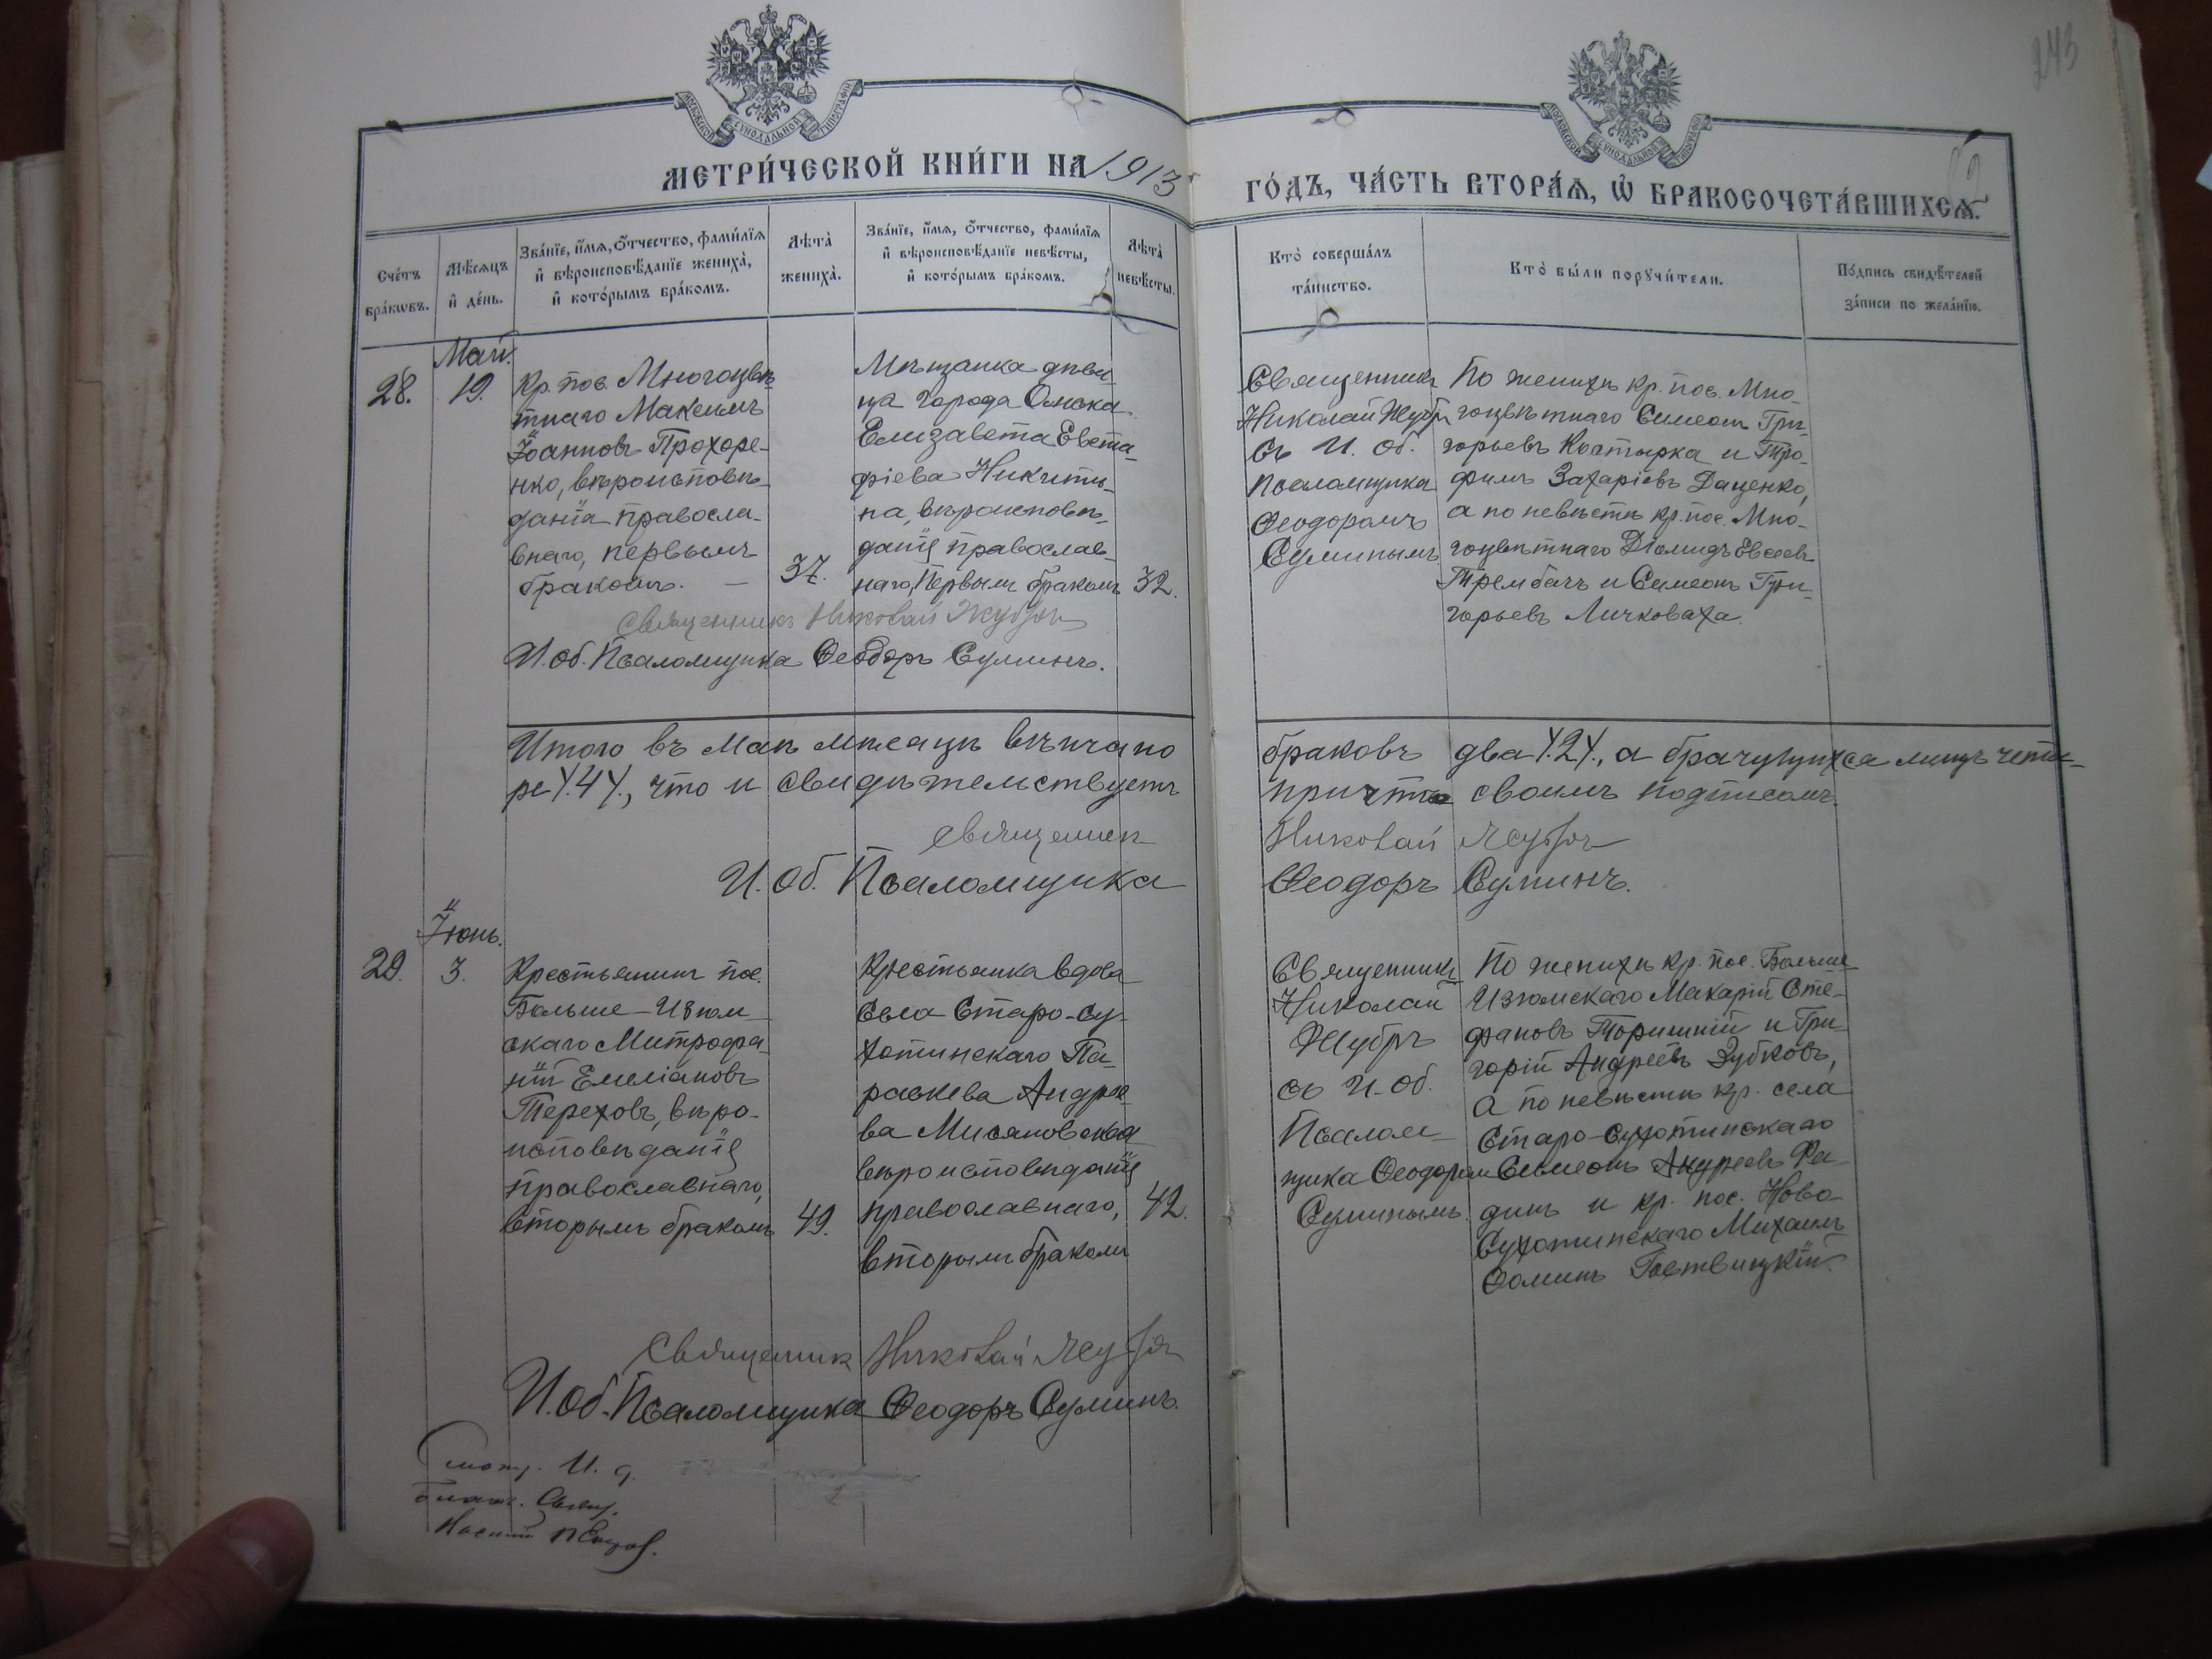 243
МОСКОВСКОЙ СѴНОДАЛЬНОЙ ТИПОГРАФІИ
МОСКОВСКОЙ СѴНОДАЛЬНОЙ ТИПОГРАФІИ
МЕТРИ́ЧЕСКОЙ КНИ́ГИ НА 1913
ГО́ДЪ, ЧА́СТЬ ВТОРА́Ѧ, Ѡ҆ БРАКОСОЧЕТА́ВШИХСѦ.
Сче́тъ
бра́кѡвъ.
Мѣ́сѧцъ
и҆ де́нь.
Зва́нїе, и҆́мѧ, ѻ҆́тчество, фами́лїѧ
и҆ вѣроисповѣ́данїе жениха̀,
и҆ кото́рымъ бра́комъ.
Лѣ́та̀
жениха̀.
Зва́нїе, и҆́мѧ, ѻ҆́тчество, фами́лїѧ
и҆ вѣроисповѣ́данїе невѣ́сты,
и҆ кото́рымъ бра́комъ.
Лѣ́та̀
невѣ́сты.
Кто̀ соверша́лъ
та́инство.
Кто̀ бы́ли порꙋчи́тели.
По́дпись свидѣ́телей
за́писи по жела́нїю.
Май.
28.
19.
Кр. пос. Многоцвѣ-
тнаго Максимъ
Іоанновъ Прохоре-
нко, вѣроисповѣ-
данія правосла-
внаго, первымъ
бракомъ. —
37.
Мѣщанка дѣви-
ца города Омска
Елизавета Евста-
фіева Никити-
на, вѣроисповѣ-
данія православ-
наго, первымъ бракомъ
32.
Священникъ
Николай Жубръ
съ И. Об.
псаломщика
Ѳеодоромъ
Суминымъ
По женихѣ кр. пос. Мно-
гоцвѣтнаго Симеонъ Гри-
горьевъ Костырка и Тро-
фимъ Захаріевъ Даценко,
а по невѣстѣ кр. пос. Мно-
гоцвѣтнаго Діомидъ Евсеевъ
Трембачъ и Симеонъ Гри-
горьевъ Личковаха.
Священникъ Николай Жубръ
И. Об. Псаломщика Ѳеодоръ Суминъ.
Итого въ Маѣ мѣсяцѣ вѣнчано браковъ два /.2/., а брачущихся лицъ четы-
ре /.4/., что и свидѣтельствуетъ причтъ своимъ подписомъ.
Священник Николай Жубръ
И. Об. Псаломщика Ѳеодоръ Суминъ.
Іюнь.
29.
3.
Крестьянинъ пос.
Больше-Изюм-
скаго Митрофа-
ній Емеліановъ
Тереховъ, вѣро-
исповѣданія
православнаго,
вторымъ бракомъ
49.
Крестьянка вдова
села Старо-Су-
хотинскаго Па-
раскева Андрее-
ва Мисяновская
вѣроисповѣданія
православнаго,
вторымъ бракомъ
42.
Священникъ
Николай
Жубръ
съ И. Об.
Псалом-
щика Ѳеодоромъ
Суминымъ.
По женихѣ кр. пос. Больше-
Изюмскаго Макарій Сте-
фановъ Торишній и Гри-
горій Андреевъ Зубковъ,
а по невѣстѣ кр. села
Старо-Сухотинскаго
Симеонъ Андреевъ Фа-
динъ и кр. пос. Ново-
Сухотинскаго Михаилъ
Ѳоминъ Гоствицкій.
Священник Николай Жубръ
И. Об. Псаломщика Ѳеодоръ Суминъ.
Смотр. И. д.
Благоч. Свящ.